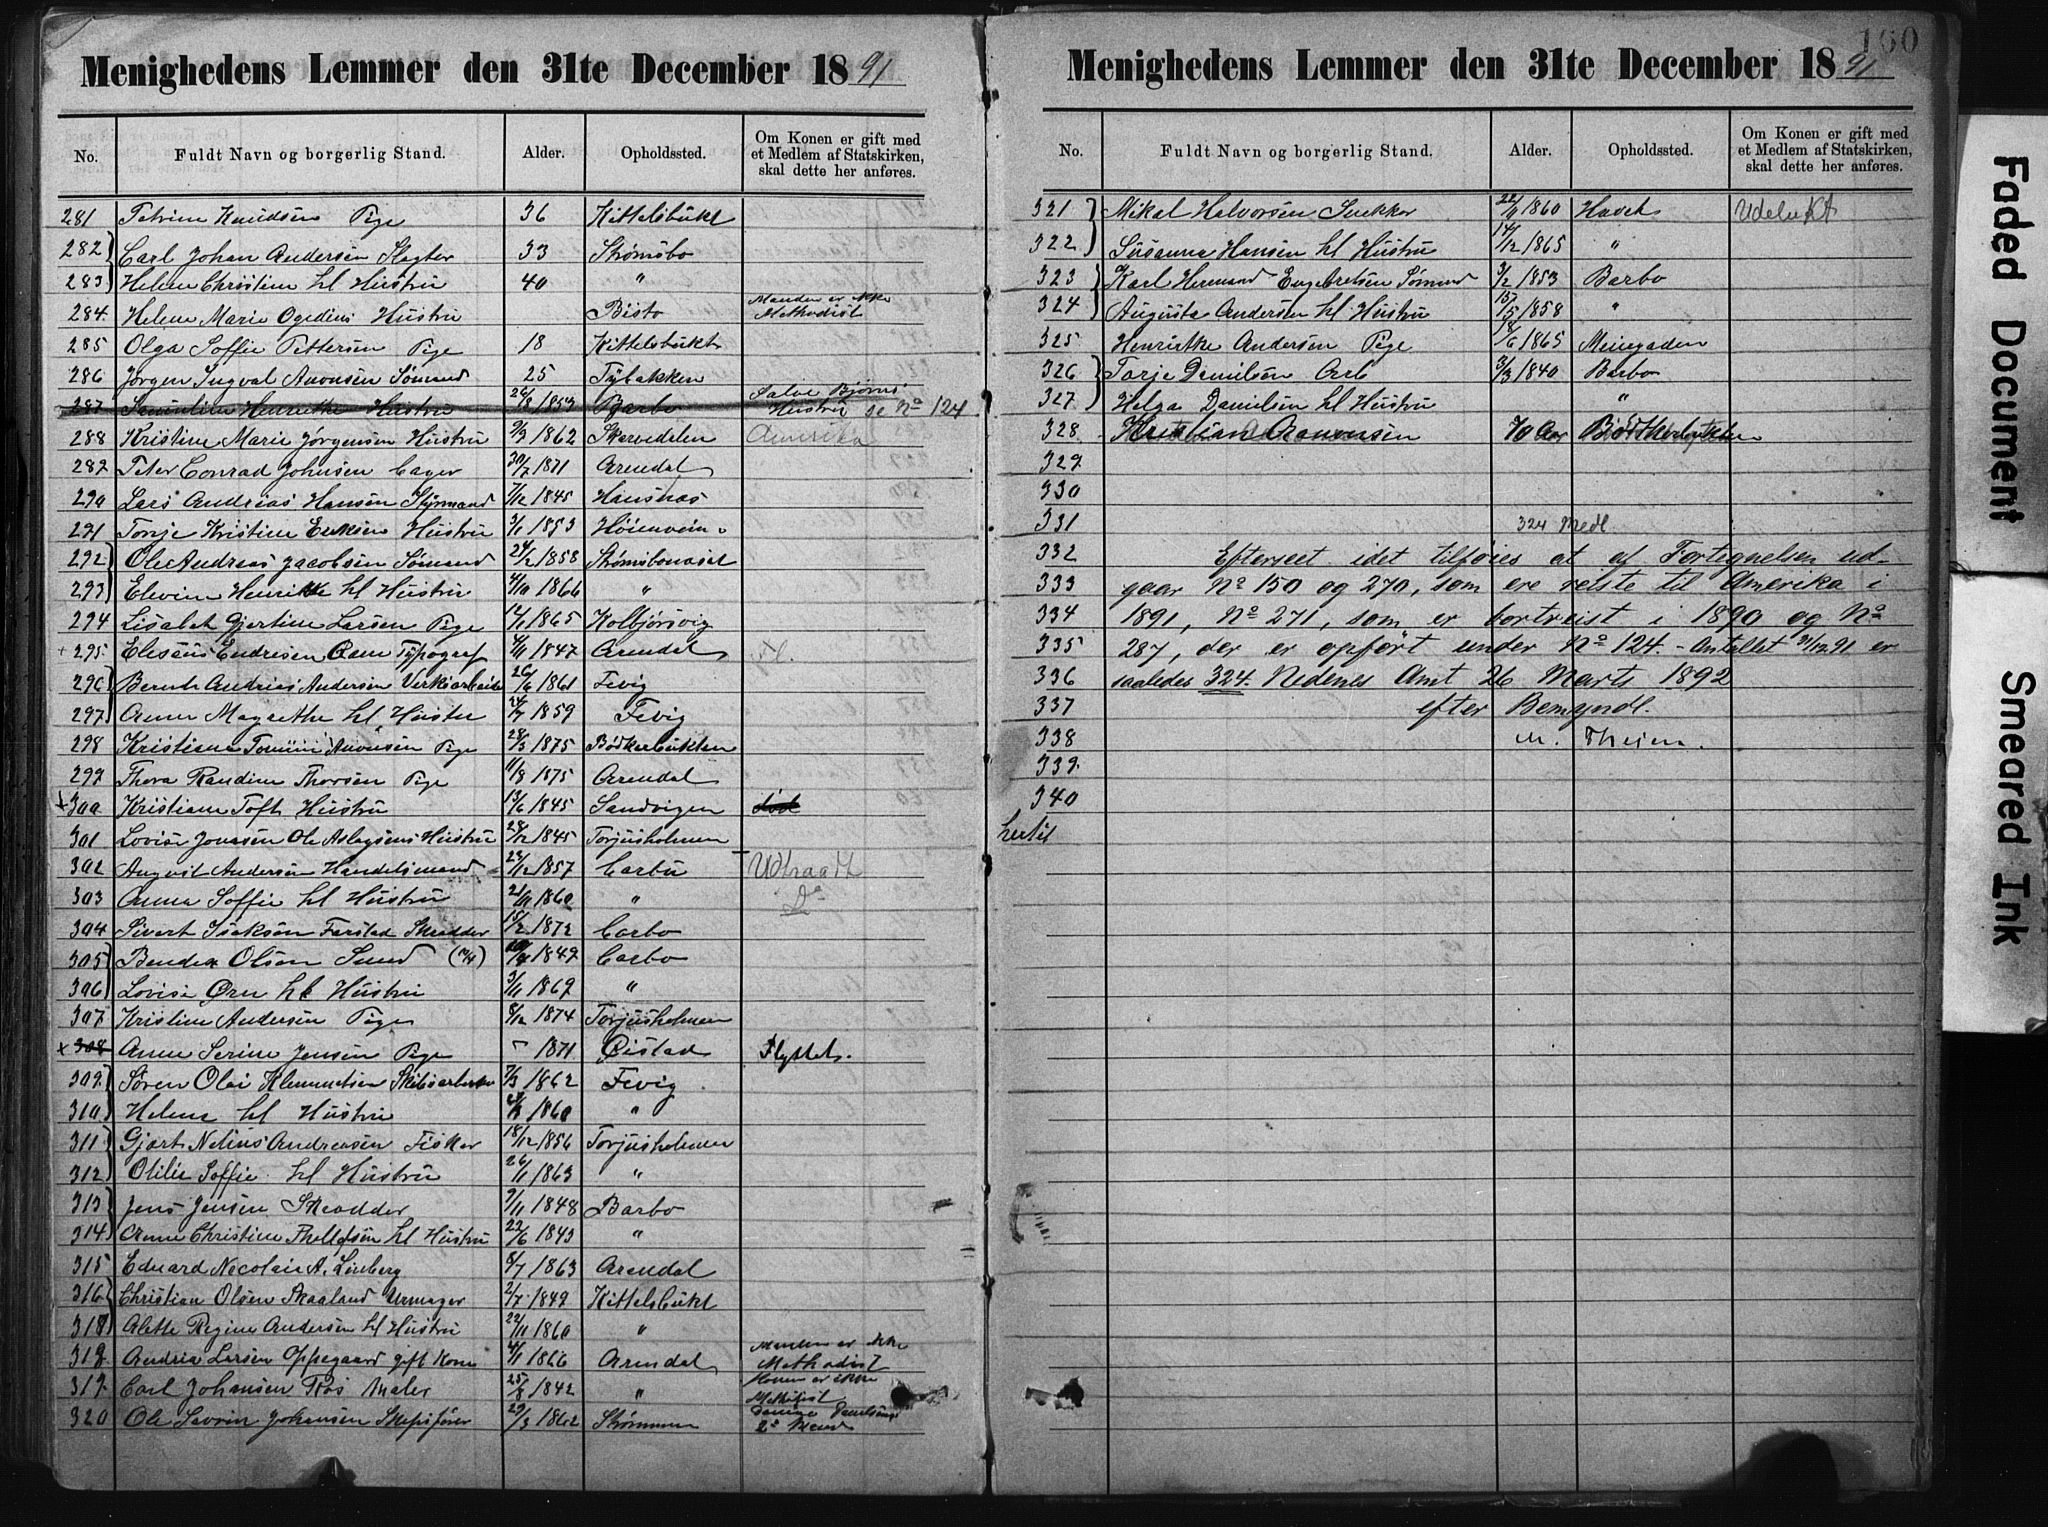 Menighedens Lemmer den 31te December 1891
No. Fuldt Navn og borgerlig Stand. Alder. Opholdssted. Om Konen er gift med et Medlem af Statskirken, skal dette her anføres.
281 Petrine Knudsen Pige 36 Kittelsbukt
282 Carl Johan Andersen Slagter 33 Strømsbo
283 Helene Christine hl Hustru 40 "
284. Helene Marie Ogedius Hustru Bisto Manden er ikke Methodist
285 Olga Soffie Pettersen Pige 18 Kittelsbukt
286 Jørgen Ingval Aronsen Sømand 25 Tybakken
287 Severine Henrikke Hustru 26/8 1853 Barbo Salve Bjørns Hustru se No 124
288 Kristine Marie Jørgensen Hustru 9/9 1862 Skarvedalen Amerika
289 Peter Conrad Johnsen Bager 30/7 1871 Arendal
290 Lars Andrias Hansen Styrmand 7/12 1845 Hansnæs
291 Tonje Kristine Eriksen Hustru 3/1 1853 Høienveien
292 Ole Andreas Jacobsen Sømand 24/2 1858 Strømsbonaset
293 Elevine Henrikke hl Hustru 4/10 1866 "
294 Lisabet Gjertine Larsen Pige 12/1 1865 Kolbjørsvig
+ 295 Eliseus Endresen Aam Typograf 4/11 1847 Arendal
296 Bernth Andrias Andersen Verksarbeider 26/6 1861 Fevig
297 Anne Magrethe hl Hustru 24/7 1859 Fevig
298 Kristiane Tomine Aronsen Pige 28/3 1875 Bødkerbukten
299 Thora Randine Thorsen Pige 11/8 1875 Arendal
x 300 Kristiane Toft Hustru 13/6 1845 Sandvigen død
301 Lovise Jonasen Ole Aslagsens Hustru 28/12 1845 Torjusholmen
302 August Andersen Handelsmand 23/12 1857 Barbu Udtraadt
303 Anna Soffie hl Hustru 21/11 1860 " Do
304 Sivert Isaksen Farstad Skrædder 15/2 1872 Barbo
305 Bendix Olsen Sund 1849 Barbo
306 Lovise Øen hl Hustru 3/11 1869 "
307 Kristine Andersen Pige 8/12 1874 Torjusholmen
x 308 Anne Serine Jensen Pige 1871 Øistad Flyttet.
309 Søren Olai Klemmetsen Skibsarbeider 7/3 1862 Fevig
310 Helene hl Hustru 1860 "
311 Gjert Nelius Andreasen Fisker 18/12 1856 Torjusholmen
312 Otilie Soffie hl Hustru 26/11 1863 "
313 Jens Jensen Skrædder 9/11 1848 Barbo
314 Anne Christine hl Hustru 22/6 1843 "
315 Eduard Nicolai A. Linberg 8/7 1863 Arendal
316 Christian Olsen Skaaland Urmager 2/7 1849 Kittelsbukt
317 Alette Regine Andersen hl Hustru 22/11 1860 "
318 Andrea Larsen Oppegaard gift Kone 4/11 1866 Arendal Manden er ikke Methodist
319 Carl Johansen Maler 25/8 1842 " Konen er ikke Methodist
320 Ole Severin Johansen Skipsfører 29/3 1862 Strømmen
Menighedens Lemmer den 31te December 1891
160
No. Fuldt Navn og borgerlig Stand. Alder. Opholdssted. Om Konen er gift med et Medlem af Statskirken, skal dette her anføres.
321 Mikal Halvorsen Snekker 22/9 1860 Havet Udelukt
322 Susanna Hansen hl Hustru 14/12 1865 "
323 Karl Hermand Engebretsen Sømand 3/2 1853 Barbo
324 Augusta Andersen hl Hustru 15/5 1858 "
325 Henriette Andersen Pige 18/6 1865 Meiegaden
326 Tarje Danielsen Arb 3/3 1840 Barbo
327 Helga Danielsen hl Hustru "
328 Kristian Aanonsen 70 Aar Bødkerbukten
329
330
331 324 Medl
332 Efterseet idet tilføies at af Fortegnelsen ud-
333 gaar No 150 og 270, som ere reiste til Amerika i
334 1891, No 271, som er bortreist i 1890 og No
335 287, der er opført under No 124. - Antallet 31/12 91 er
336 saaledes 324. Nedenes Amt 26 Marts 1892
337 efter Bemyndl.
338 M. Theien.
339
340
hertil
Faded Document
Smeared Ink